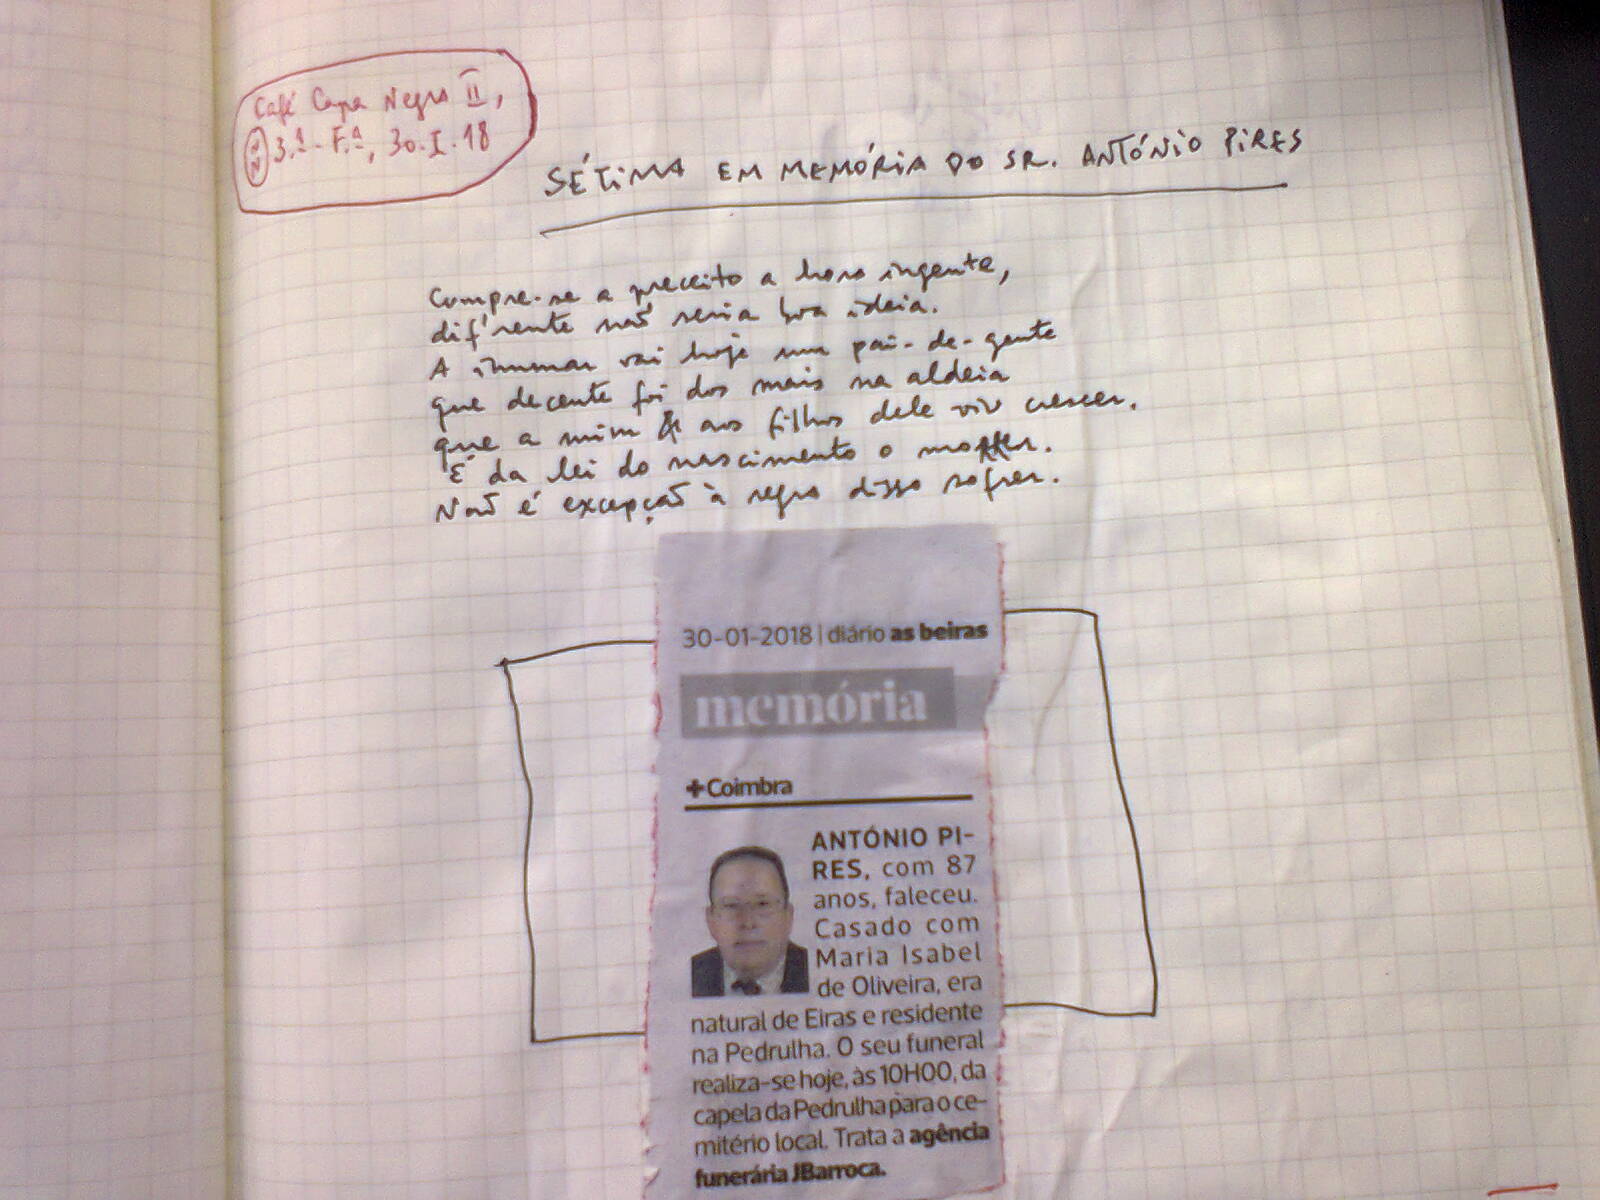 Café Capa Negra II,
3.ª-F.ª, 30.I.18
SÉTIMA EM MEMÓRIA DO SR. ANTÓNIO PIRES
Cumpre-se a preceito a hora ingente,
dif'rente não seria boa ideia.
A inumar vai hoje um pai-de-gente
que decente foi dos mais na aldeia
que a mim & aos filhos dele viu crescer.
É da lei do nascimento o morrer.
Não é excepção à regra disso sofrer.
30-01-2018 | diário as beiras
memória
+Coimbra
ANTÓNIO PI-
RES, com 87
anos, faleceu.
Casado com
Maria Isabel
de Oliveira, era
natural de Eiras e residente
na Pedrulha. O seu funeral
realiza-se hoje, às 10H00, da
capela da Pedrulha para o ce-
mitério local. Trata a agência
funerária JBarroca.